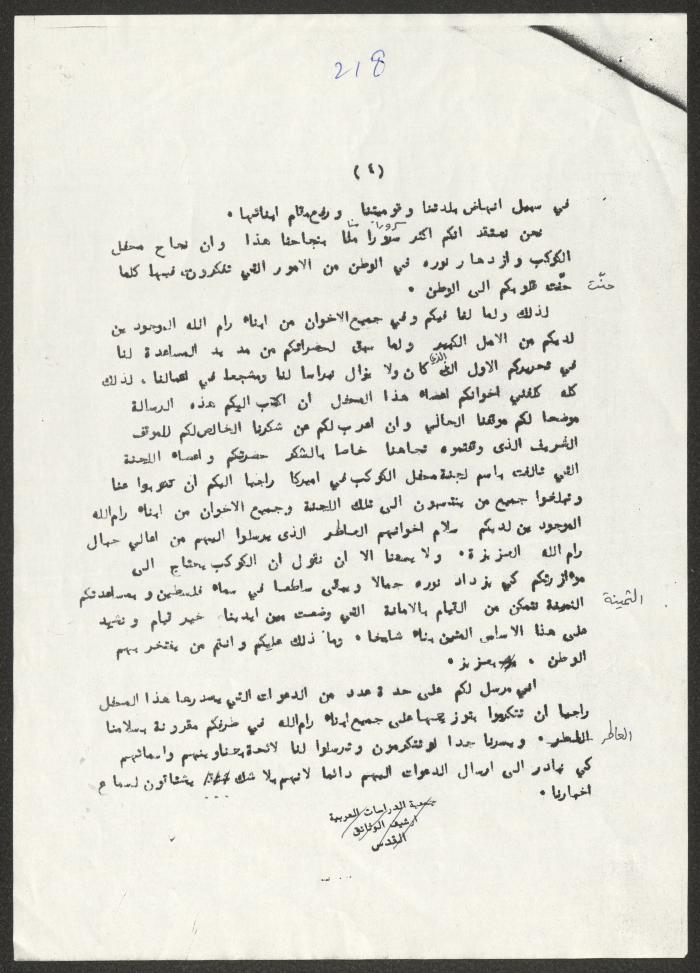 218
(٤)
في سبيل انهاض بلدتنا وقوميتنا ورفع مقام ابنائها .
سرورا منا
نحن نعتقد انكم اكثر سرورا منا بنجاحنا هذا وان نجاح محفل
الكوكب وازدهار نوره في الوطن من الامور التي تفكرون فيها كلما
حنّت حنّت قلوبكم الى الوطن .
لذلك ولما لنا فيكم وفي جميع الاخوان من ابناء رام الله الموجودين
لديكم من الامل الكبير ولما سبق لحضراتكم من مد يد المساعدة لنا
في تحريركم الاول الذي كان ولا يزال نبراسا لنا ومشجعا في اعمالنا ، لذلك
كله كلفني اخوانكم اعضاء هذا المحفل ان اكتب اليكم هذه الرسالة
موضحا لكم موقفنا الحالي وان اعرب لكم عن شكرنا الخالص لكم للموقف
الشريف الذى وقفتموه تجاهنا خاصا بالشكر حضرتكم واعضاء اللجنة
التي تألفت باسم لجنة محفل الكوكب في اميركا راجيا اليكم ان تنوبوا عنا
وتبلغوا جميع من ينتسبون الى تلك اللجنة وجميع الاخوان من ابناء رام الله
الموجودين لديكم سلام اخوانهم العاطر الذى يرسلوا اليهم من اعالي جبال
رام الله العزيزة . ولا يسعنا الا ان نقول ان الكوكب يحتاج الى
مؤازرتكم كي يزداد نوره جمالا ويبقى ساطعا في سماء فلسطين وبمساعدتكم
الثمينة الثمينة نتمكن من القيام بالامانة التي وضعت بين ايدينا خير قيام ونشيد
على هذا الاساس المتين بناء شامخا . وما ذلك عليكم وانتم من يفتخر بهم
الوطن . بعزيز .
اني مرسل لكم على حدة عدد من الدعوات التي يصدرها هذا المحفل
راجيا ان تتكرموا بتوزيعها على جميع ابناء رام الله في طرفكم مقرونة بسلامنا
العاطر . ويسرنا جدا لو تتكرمون وترسلوا لنا لائحة بعناوينهم واسمائهم العاطر
كي نبادر الى ارسال الدعوات اليهم دائما لانهم بلا شك يشتاقون لسماع
اخبارنا .
جمعية الدراسات العربية
ارشيف الوثائق
القدس